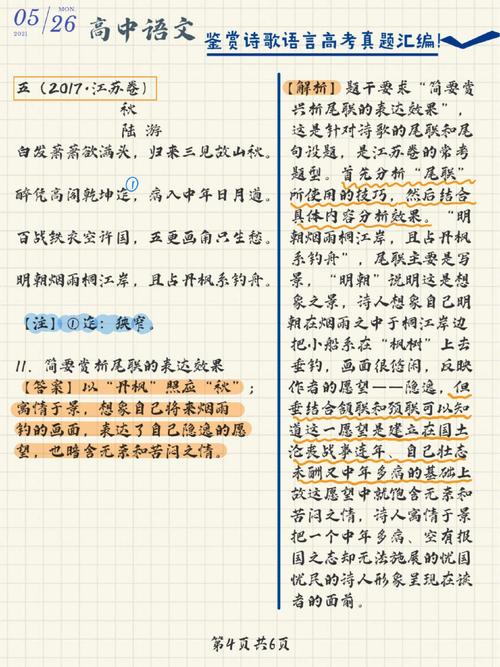 05/26
MON.
2021
高中语文
鉴赏诗歌语言高考真题汇编!
五(2017·江苏卷)
秋
陆 游
白发萧萧欲满头,归来三见故山秋。
醉凭高阁乾坤迮①,病入中年日月遒。
百战铁衣空许国,五更画角只生愁。
明朝烟雨桐江岸,且占丹枫系钓舟。
【注】①迮:狭窄。
11. 简要赏析尾联的表达效果
【答案】以“丹枫”照应“秋”;
寓情于景,想象自己将来烟雨
钓的画面,表达了自己隐逸的愿
望,也暗含无奈和苦闷之情。
【解析】题干要求“简要赏
析尾联的表达效果”,
这是针对诗歌的尾联和尾
句设题,是江苏卷的常考
题型。首先分析“尾联”
所使用的技巧,然后结合
具体内容分析效果。“明
朝烟雨桐江岸,且占丹枫
系钓舟”,尾联主要是写
景,“明朝”说明这是想
象之景,诗人想象自己明
朝在烟雨之中于桐江岸边
把小船系在“枫树”上去
垂钓,画面很悠闲,反映
作者的愿望——隐逸,但
是结合颔联和颈联可以知
道这一愿望是建立在国土
沦丧战事连年、自己壮志
未酬又中年多病的基础上
故这愿望中就饱含无奈和
苦闷之情,诗人寓情于景
把一个中年多病、空有报
国之志却无法施展的忧国
忧民的诗人形象呈现在读
者的面前。
第4页 共6页